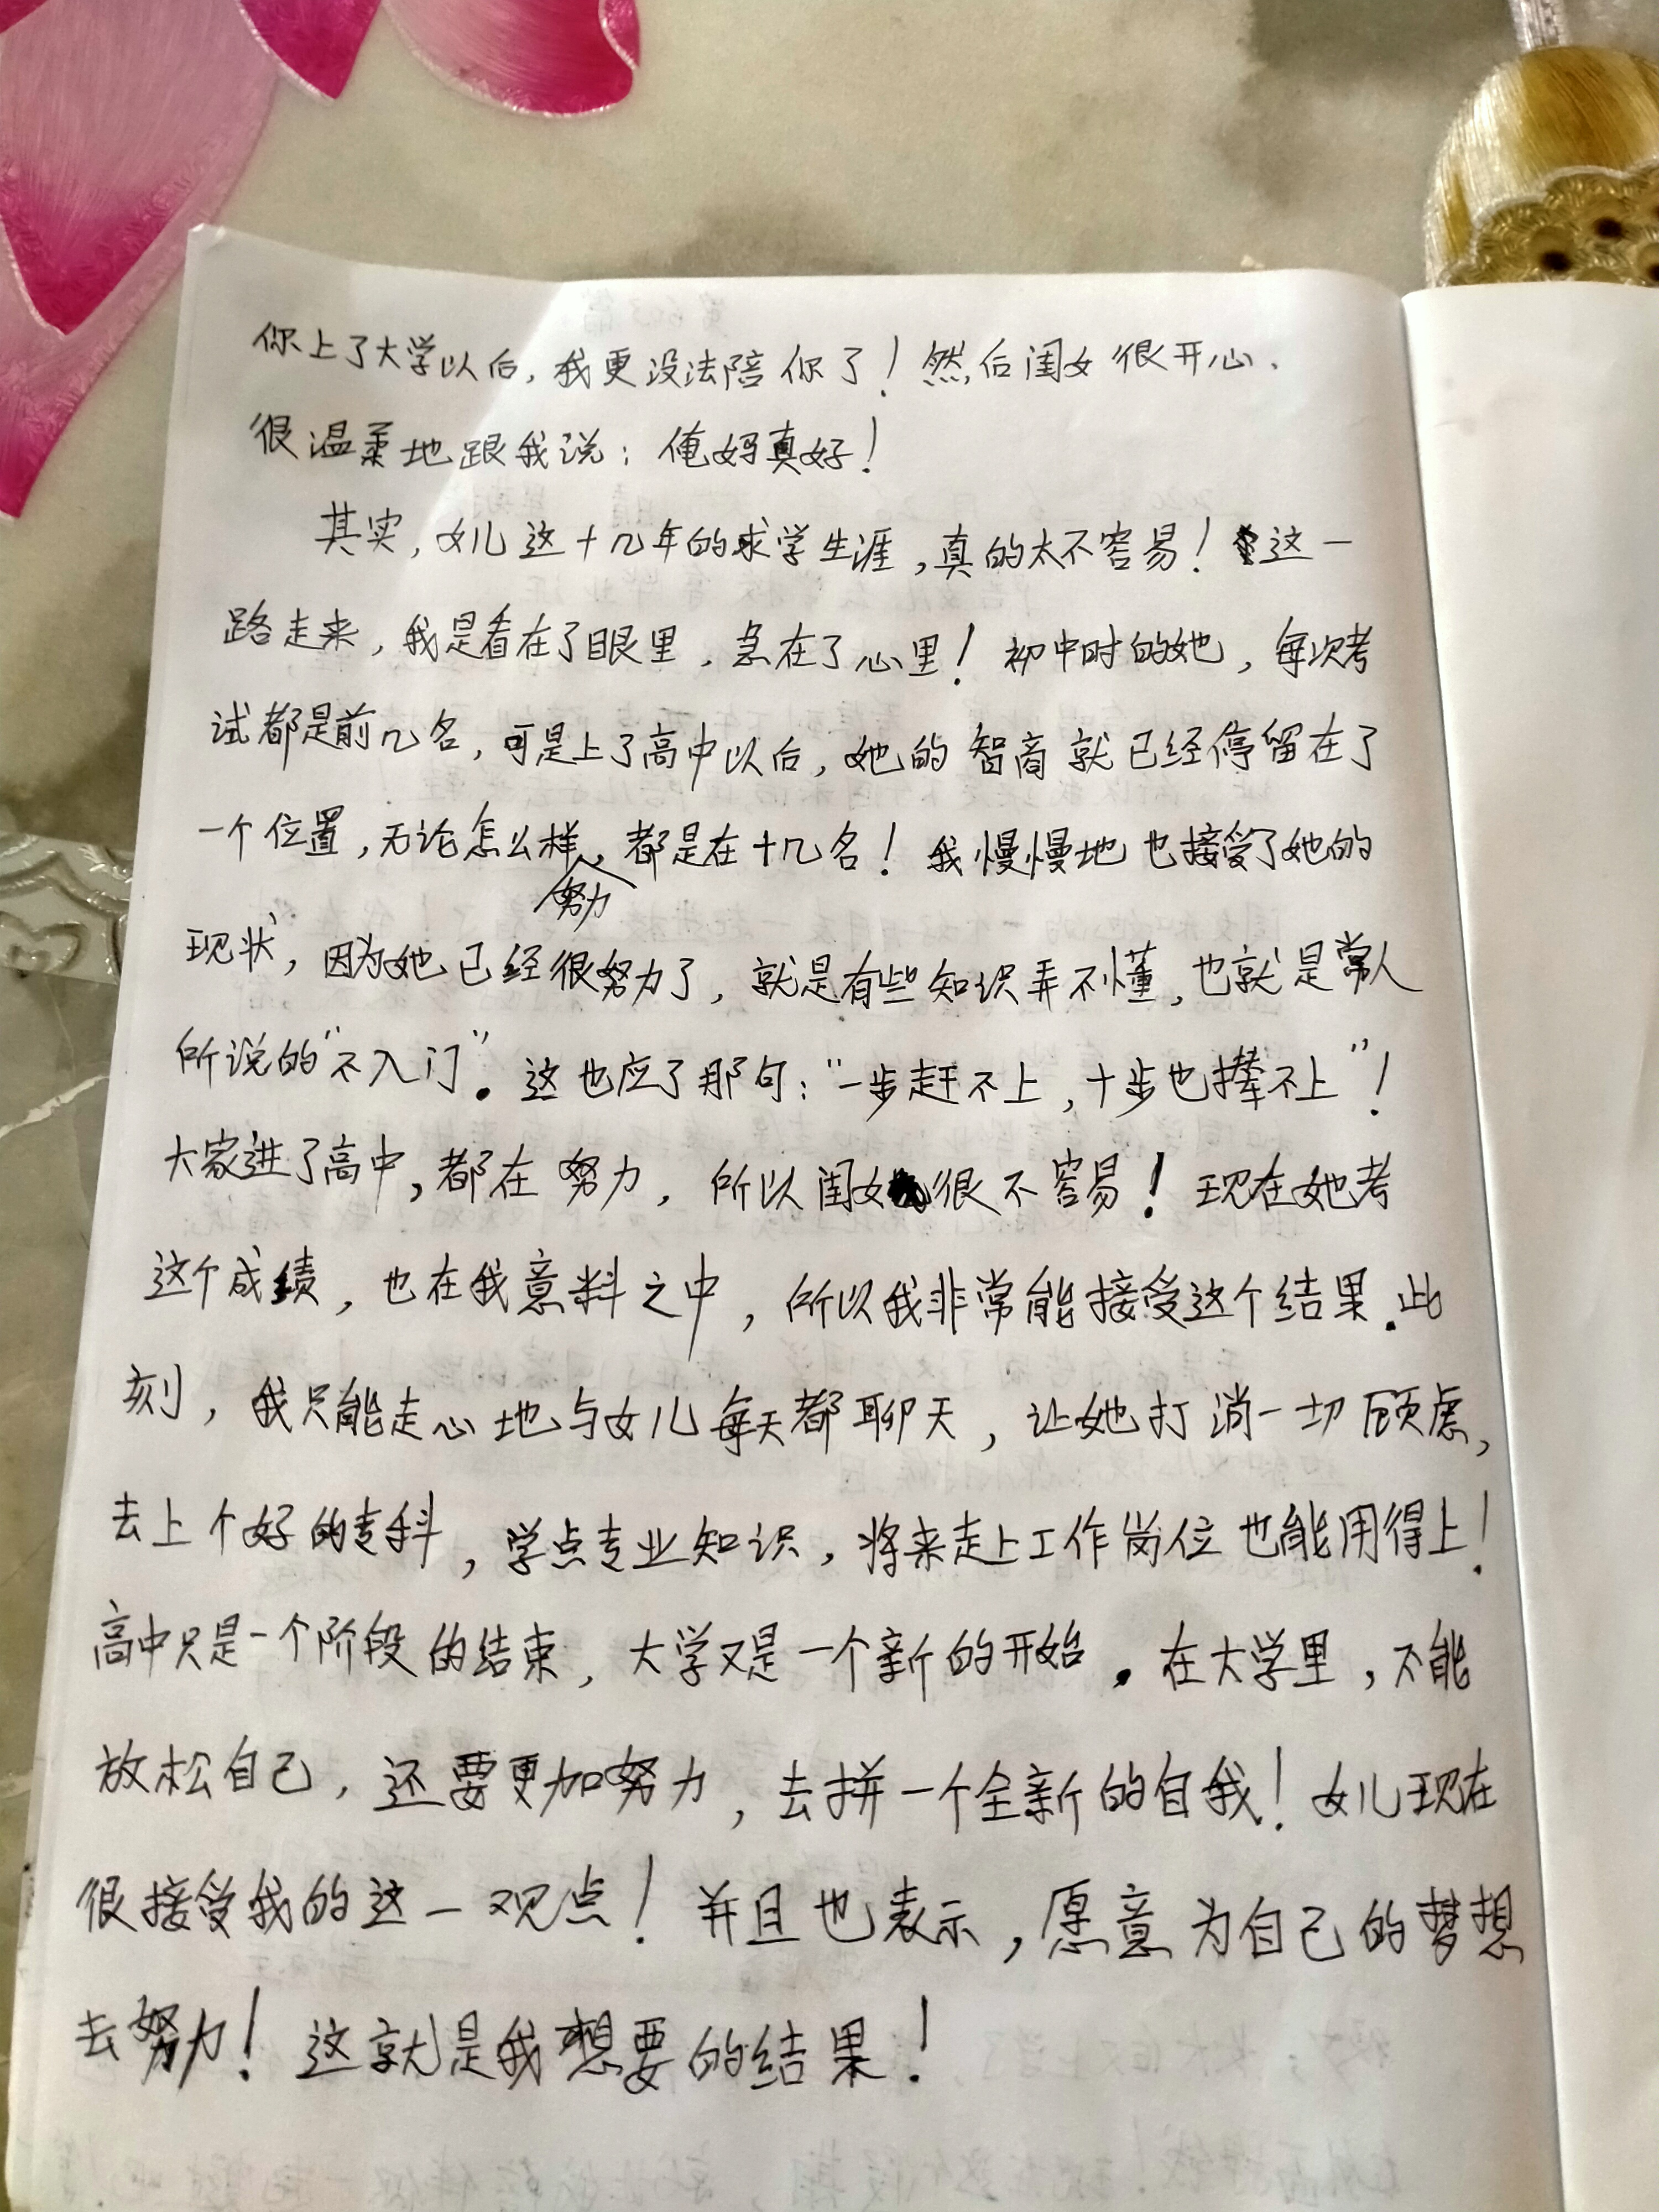 你上了大学以后,我更没法陪你了!然后闺女很开心、
很温柔地跟我说:俺妈真好!
其实,女儿这十几年的求学生涯,真的太不容易!这一
路走来,我是看在了眼里,急在了心里!初中时的她,每次考
试都是前几名,可是上了高中以后,她的智商就已经停留在了
一个位置,无论怎么样努力,都是在十几名!我慢慢地也接受了她的
现状,因为她已经很努力了,就是有些知识弄不懂,也就是常人
所说的“不入门”。这也应了那句:“一步赶不上,十步也撵不上”!
大家进了高中,都在努力,所以闺女很不容易!现在她考
这个成绩,也在我意料之中,所以我非常能接受这个结果.此
刻,我只能走心地与女儿每天都聊天,让她打消一切顾虑,
去上个好的专科,学点专业知识,将来走上工作岗位也能用得上!
高中只是一个阶段的结束,大学又是一个新的开始。在大学里,不能
放松自己,还要更加努力,去拼一个全新的自我!女儿现在
很接受我的这一观点!并且也表示,愿意为自己的梦想
去努力!这就是我想要的结果!